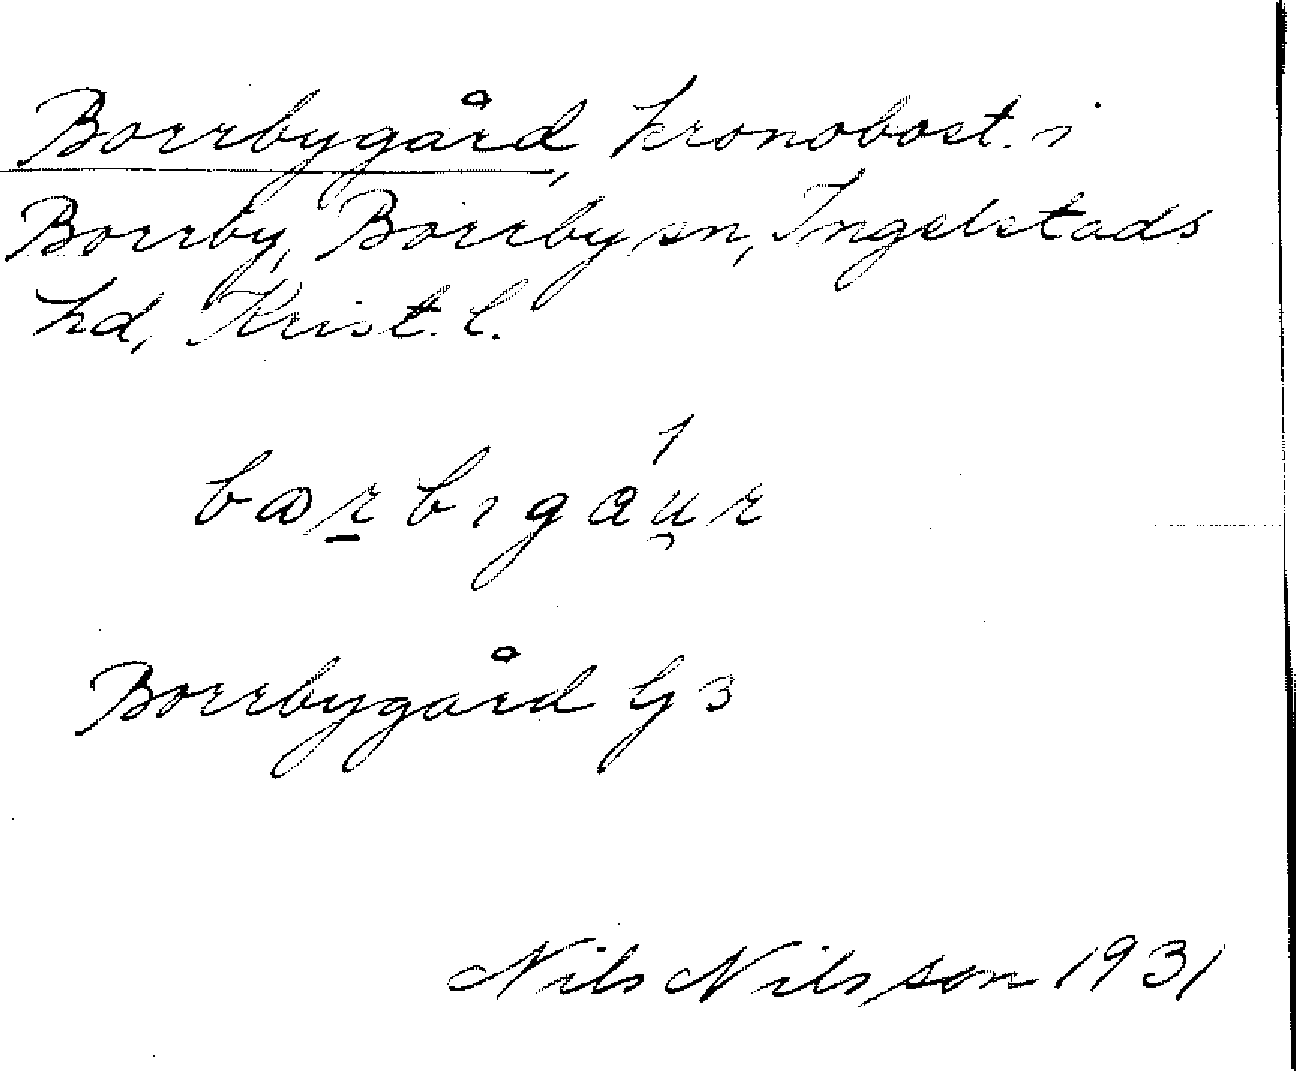 Borrbygård, kronobost. i
Borrby, Borrby sn, Ingelstads
hd, Krist. l.
Borrbygård G3
Nils Nilsson 1931